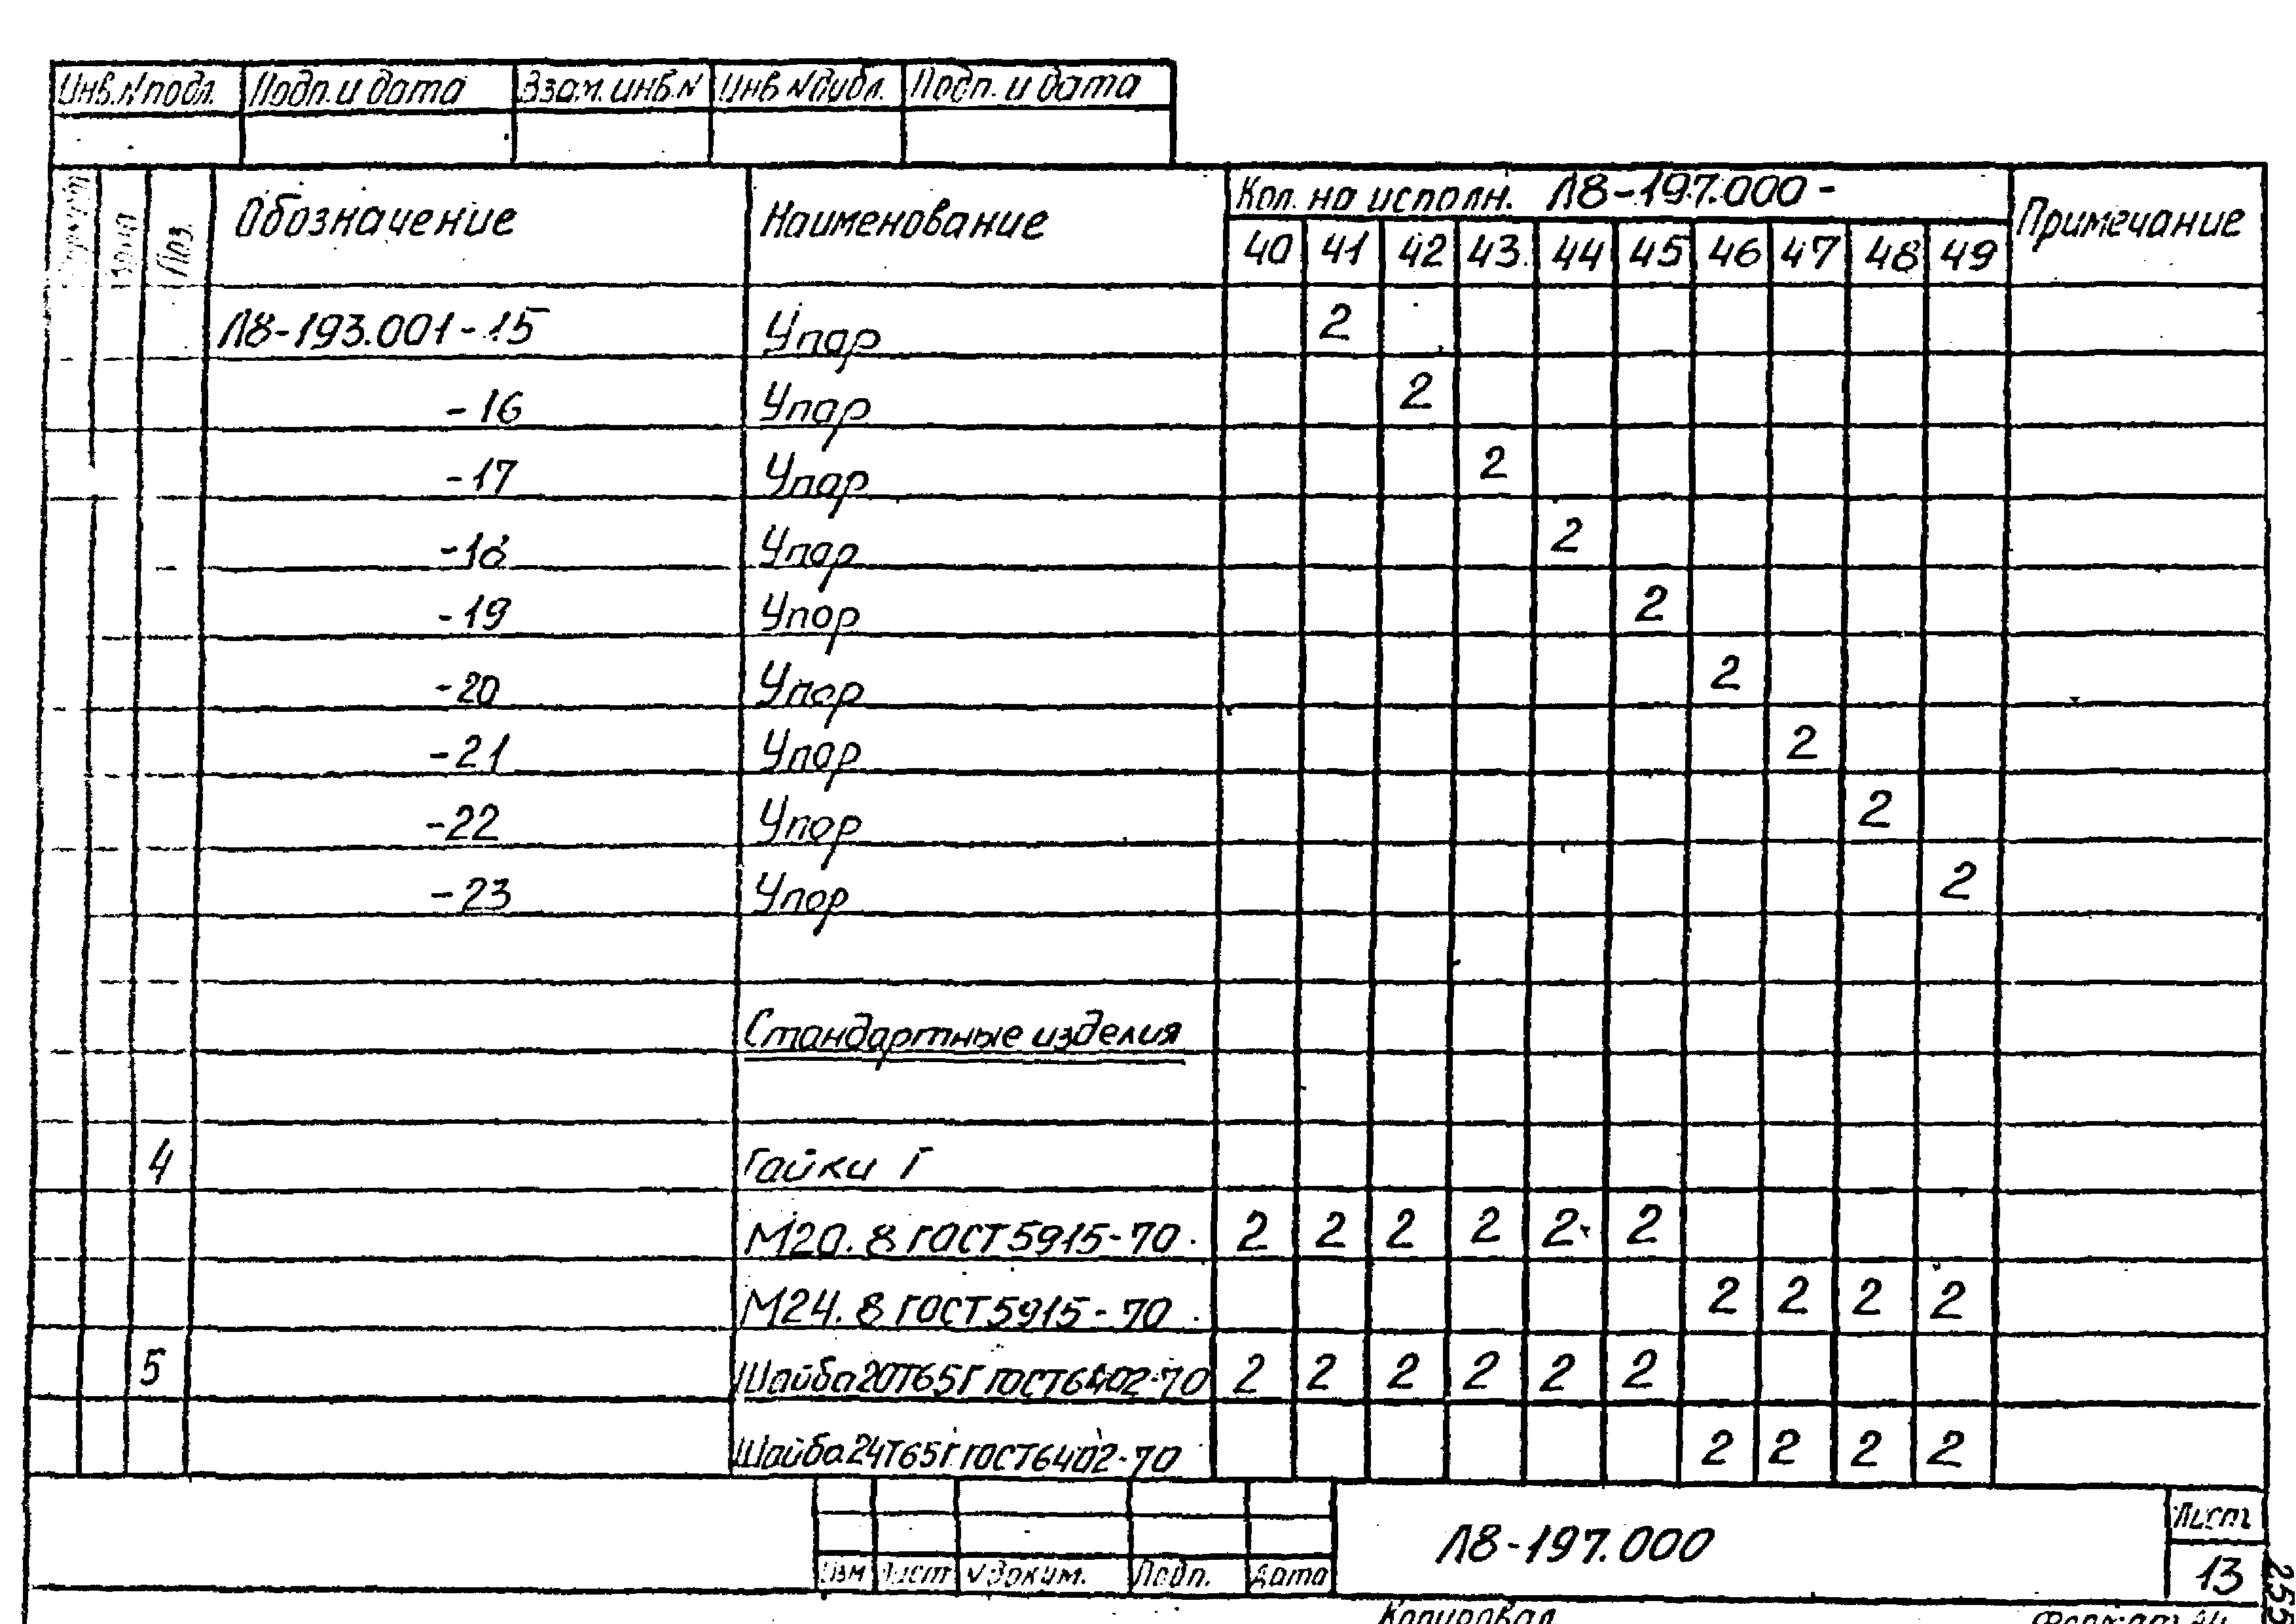 Инв.N подл. Подп. и дата Взам. инв. N Инв N дубл. Подп. и дата
Формат Зона Поз. Обозначение Наименование Кол. на исполн. Л8-197.000- Примечание
40 41 42 43 44 45 46 47 48 49
Л8-193.001-15 Упор 2
-16 Упор 2
-17 Упор 2
-18 Упор 2
-19 Упор 2
-20 Упор 2
-21 Упор 2
-22 Упор 2
-23 Упор 2
Стандартные изделия
4 Гайки Г
М20.8 ГОСТ 5915-70 2 2 2 2 2 2
М24.8 ГОСТ 5915-70 2 2 2 2
5 Шайба 20Т65Г ГОСТ 6402-70 2 2 2 2 2 2
Шайба 24Т65Г ГОСТ 6402-70 2 2 2 2
Л8-197.000 Лист
Изм Лист N докум. Подп. Дата 13
Копировал